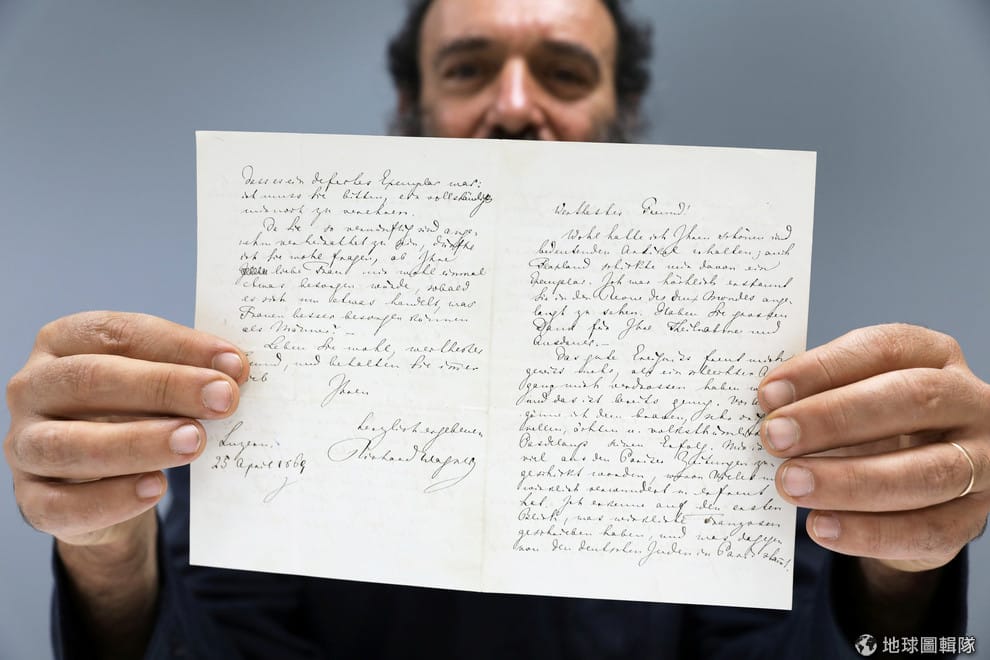 Dass es ein defectes Exemplar war:
ich muss Sie bitten, ein vollständiges
zu verehren.
Da Sie so vernünftig sind ange-
nehm verheirathet zu sein, dürfte
ich Sie wohl fragen, ob Ihre
liebe Frau mir wohl einmal
etwas besorgen würde, sobald
es sich um etwas handelt, was
Frauen besser besorgen können
als Männer? —
Leben Sie wohl, werthester
und behalten Sie immer
lieb
Ihren
herzlich ergebenen
Richard Wagner
Luzern.
25 April 1869
Werthester Freund!
Wohl hatte ich Ihren schönen und
bedeutenden Artikel erhalten; auch
schickte mir davon ein
Exemplar. Ich war höchlich erstaunt
Sie in der Revue des deux Mondes ange-
langt zu sehen. Haben Sie grossen
Dank für Ihre Theilnahme und
Ausdauer. —
Das gute Ereigniss freut mich
gewiss mehr, als ein schlechter
gang mich verdrossen haben
und das ist bereits genug. Vor
ginne ich dem braven, sehr
vollen, ächten u. volksthümlichen
Pasdeloup seinen Erfolg. Mir
viel aus den Pariser Zeitungen
geschickt worden, wovon Vieles
wirklich verwundert u. erfreut
hat. Ich erkenne auf den ersten
Blick, was wirkliche Franzosen
geschrieben haben, und was dagegen
von den deutschen Juden in Paris
地球圖輯隊